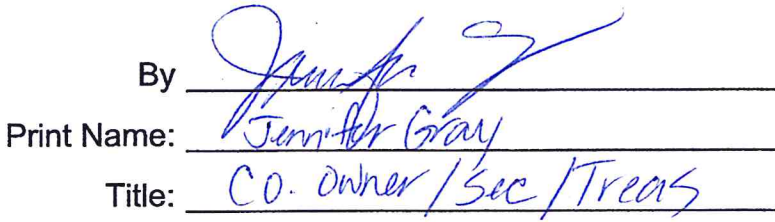 By Jennifer G
Print Name: Jennifer Gray
Title: CO. Owner / Sec / Treas